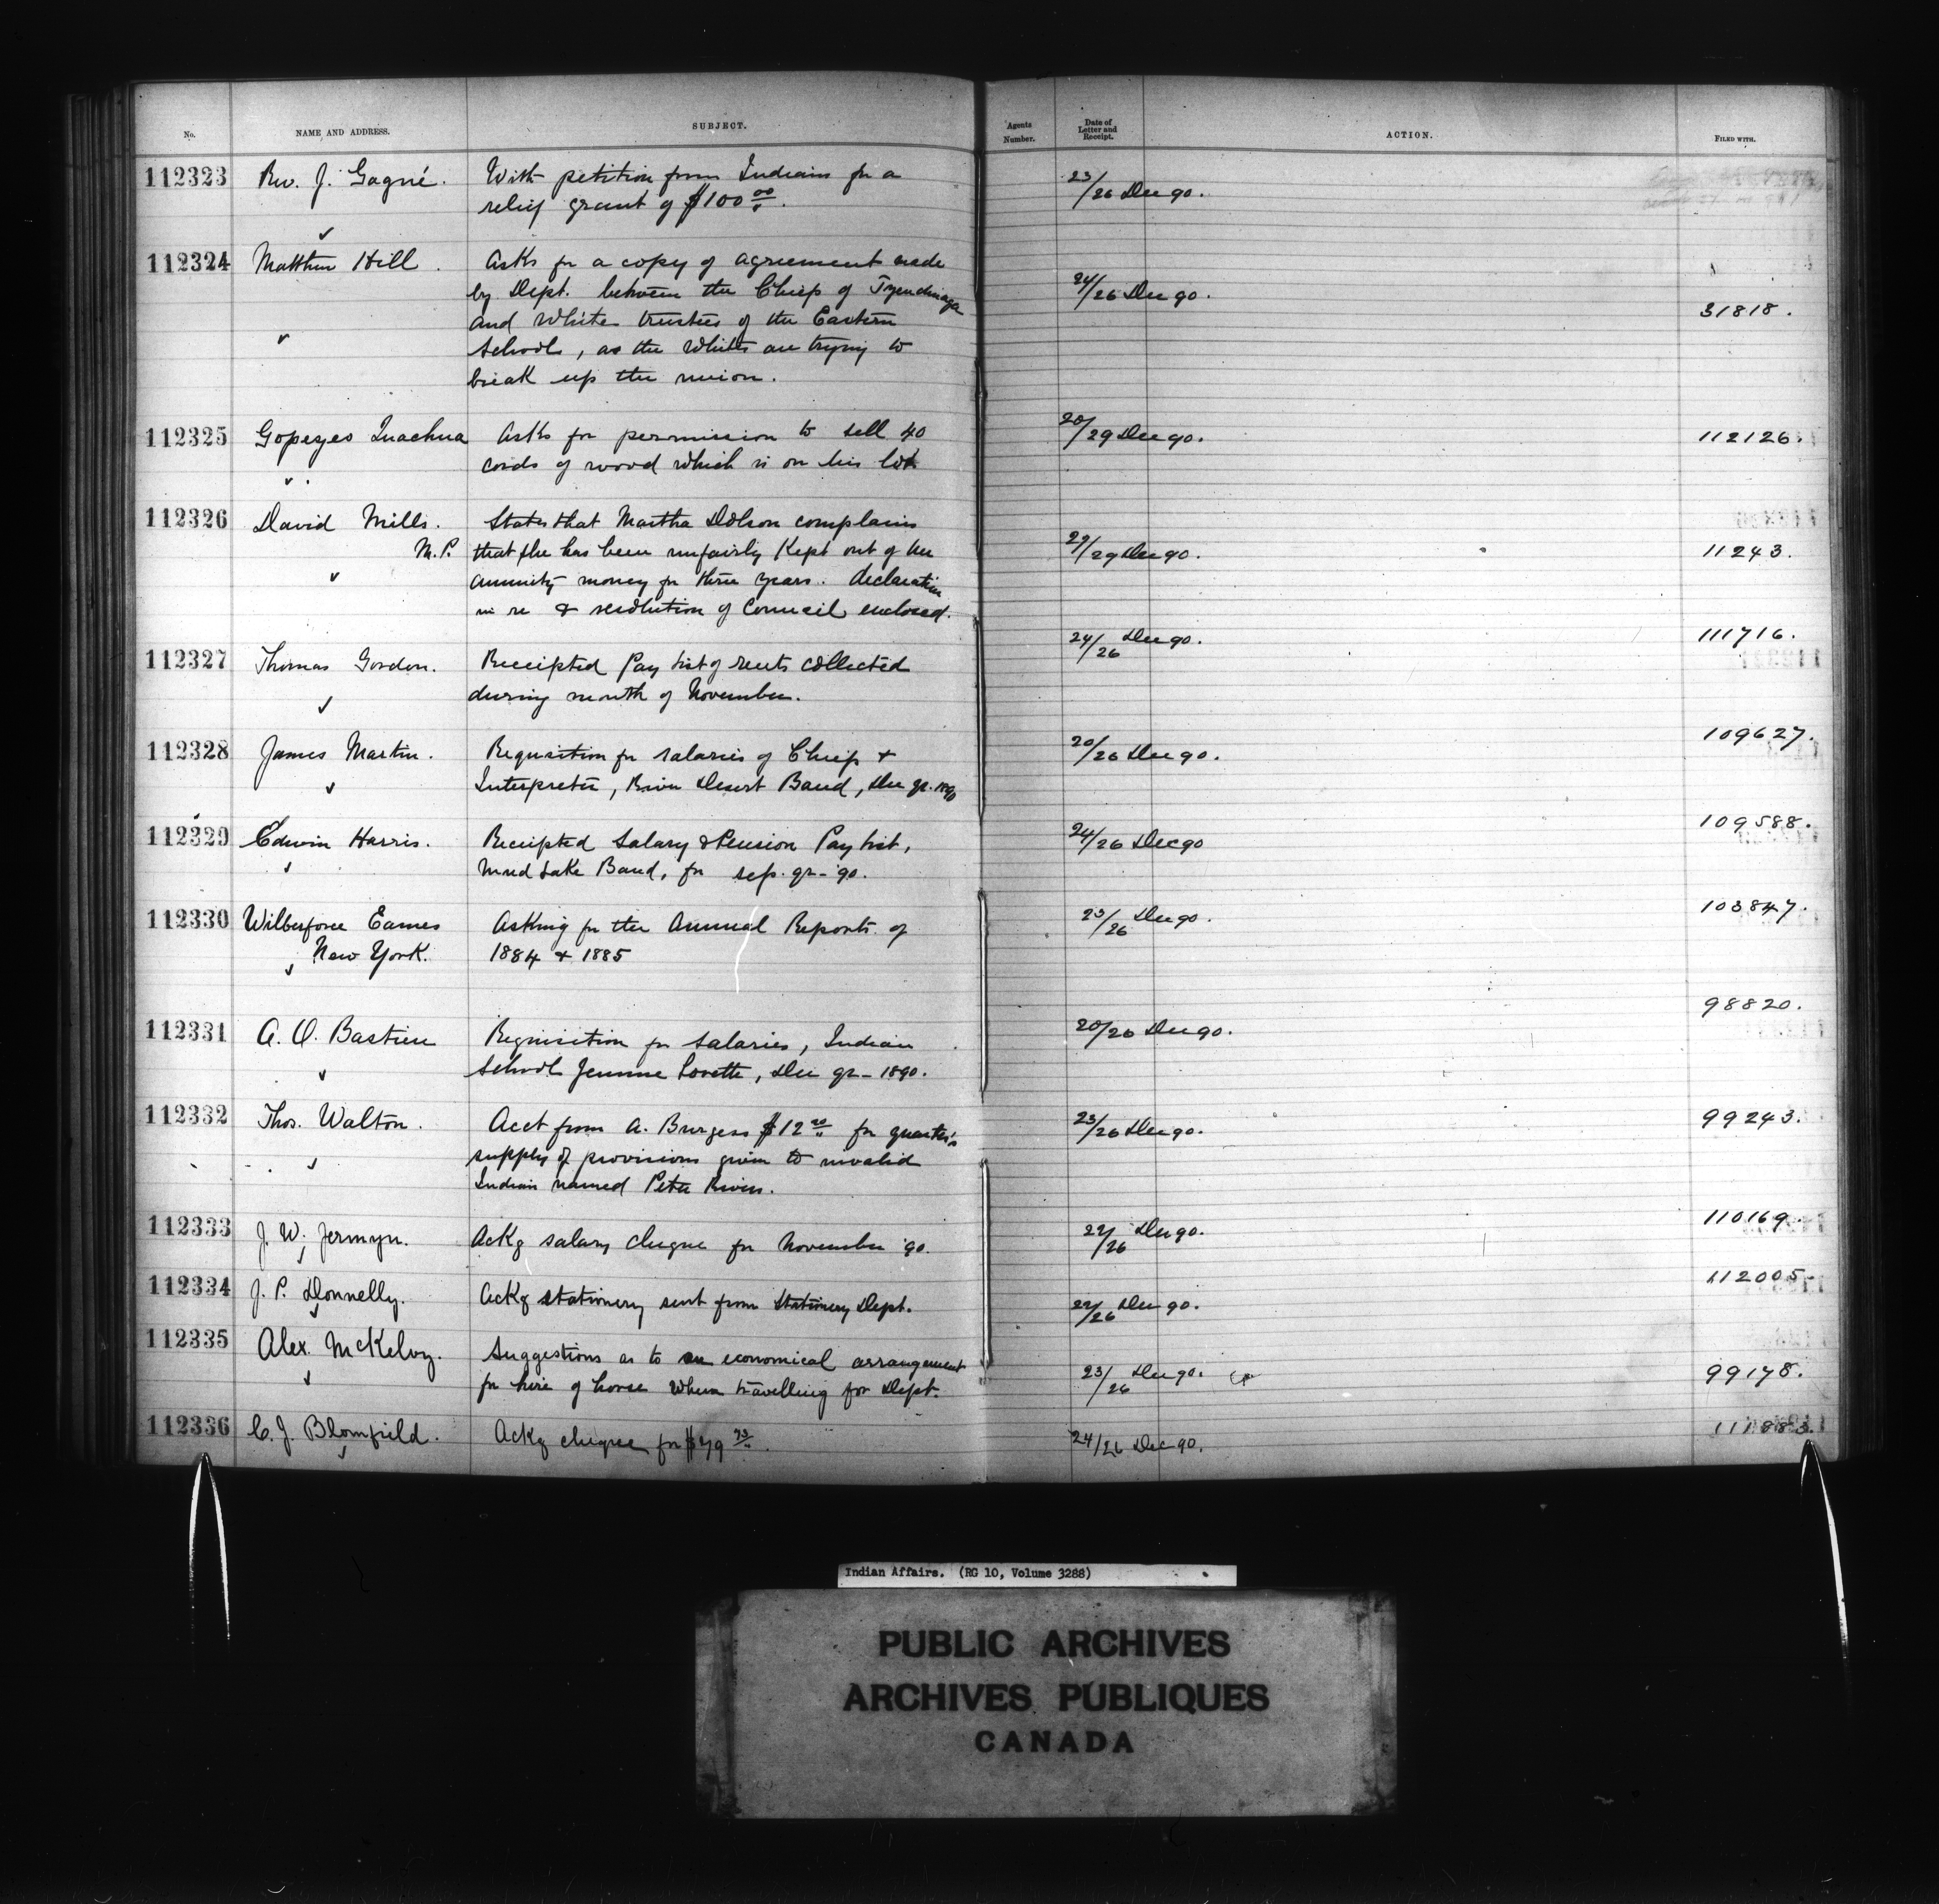 No. NAME AND ADDRESS. SUBJECT. Agents Number. Date of Letter and Receipt. ACTION. FILED WITH.
112323 Rev. J. Gagné. With petition from Indians for a 23/26 Dec 90.
relief grant of $100.00.
112324 Matthew Hill. Asks for a copy of agreement made
by Dept. between the Chiefs of Tyendinaga 24/26 Dec 90. 31818.
and White trustees of the Eastern
Schools, as the Whites are trying to
break up the union.
112325 Asks for permission to sell 40 20/29 Dec 90. 112126.
cords of wood which is on his lot.
112326 David Mills. States that Martha Dolson complains
M.P. that she has been unfairly kept out of her 27/29 Dec 90. 11243.
annuity money for three years. declaration
in re & resolution of Council enclosed.
112327 Thomas Gordon. Receipted Pay list of rents collected 24/26 Dec 90. 111716.
during month of November.
112328 James Martin. Requisition for salaries of Chiefs & 20/26 Dec 90. 109627.
Interpreter, River Desert Band, Dec qr. 1890
112329 Edwin Harris. Receipted Salary & Pension Pay list, 24/26 Dec 90 109588.
Mud Lake Band, for sep. qr - '90.
112330 Wilberforce Eames Asking for the Annual Reports of 23/26 Dec 90. 103847.
New York. 1884 & 1885
112331 A. O. Bastien Requisition for salaries, Indian 20/26 Dec 90. 98820.
School Jeunne Lorette, Dec qr - 1890.
112332 Thos. Walton. Acct from A. Burgess $12 for quarter's 23/26 Dec 90. 99243.
supply of provisions given to invalid
Indian named Peter Rivers.
112333 J. W. Jermyn. Ackg salary cheque for November '90. 22/26 Dec 90. 110169.
112334 J. P. Donnelly. Ackg stationery sent from Stationery Dept. 22/26 Dec 90. 112005.
112335 Alex. McKelvy. Suggestions as to an economical arrangement 23/26 Dec 90. 99178.
for hire of horse when travelling for Dept.
112336 C. J. Blomfield. Ackg cheque for $79 24/26 Dec 90.
Indian Affairs. (RG 10, Volume 3288)
PUBLIC ARCHIVES
ARCHIVES PUBLIQUES
CANADA